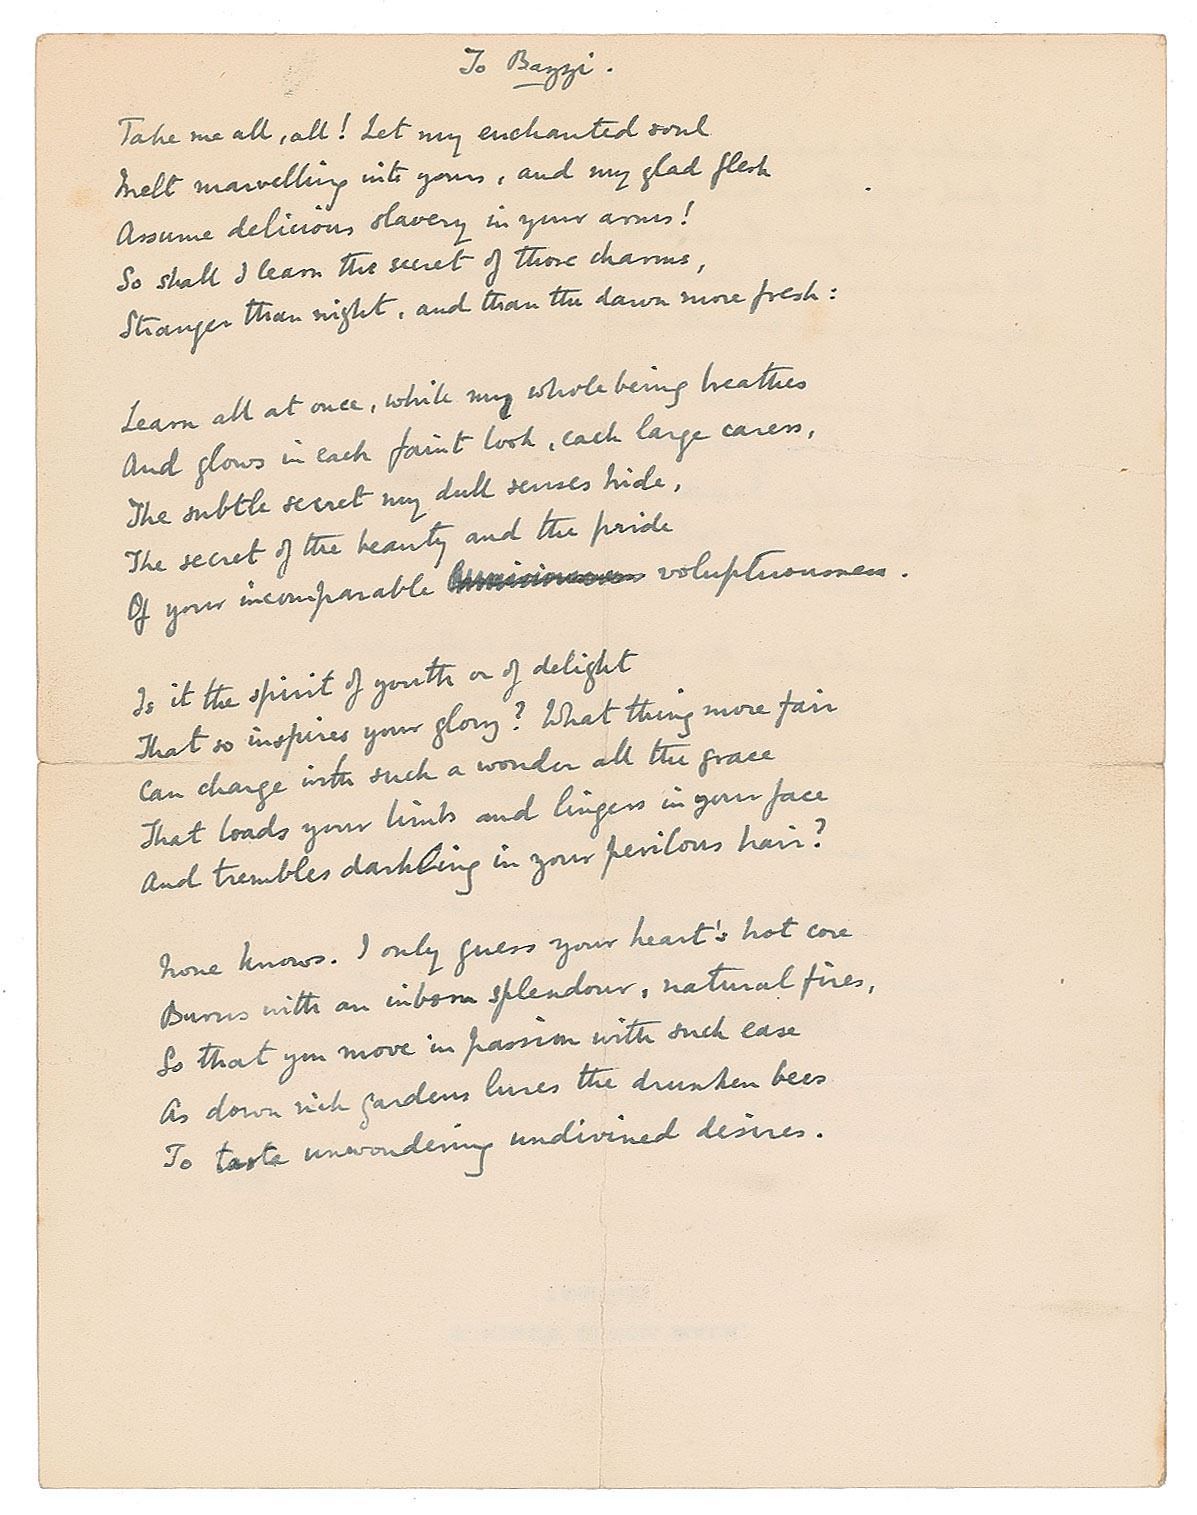 To Bazzi.
Take me all, all! Let my enchanted soul
Melt marvelling into yours, and my glad flesh
Assume delicious slavery in your arms!
So shall I learn the secret of those charms,
Stranger than night, and than the dawn more fresh:
Learn all at once, while my whole being breathes
And glows in each faint look, each large caress,
The subtle secret my dull senses hide,
The secret of the beauty and the pride
Of your incomparable voluptuousness.
Is it the spirit of youth or of delight
That so inspires your glory? What thing more fair
Can charge with such a wonder all the grace
That loads your limbs and lingers in your face
And trembles darkling in your perilous hair?
None knows. I only guess your heart's hot core
Burns with an inborn splendour, natural fires,
So that you move in passion with such ease
As down rich gardens lures the drunken bees
To taste unwondering undivined desires.